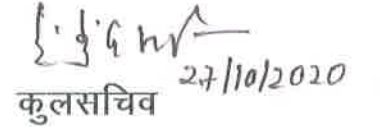 27/10/2020
कुलसचिव